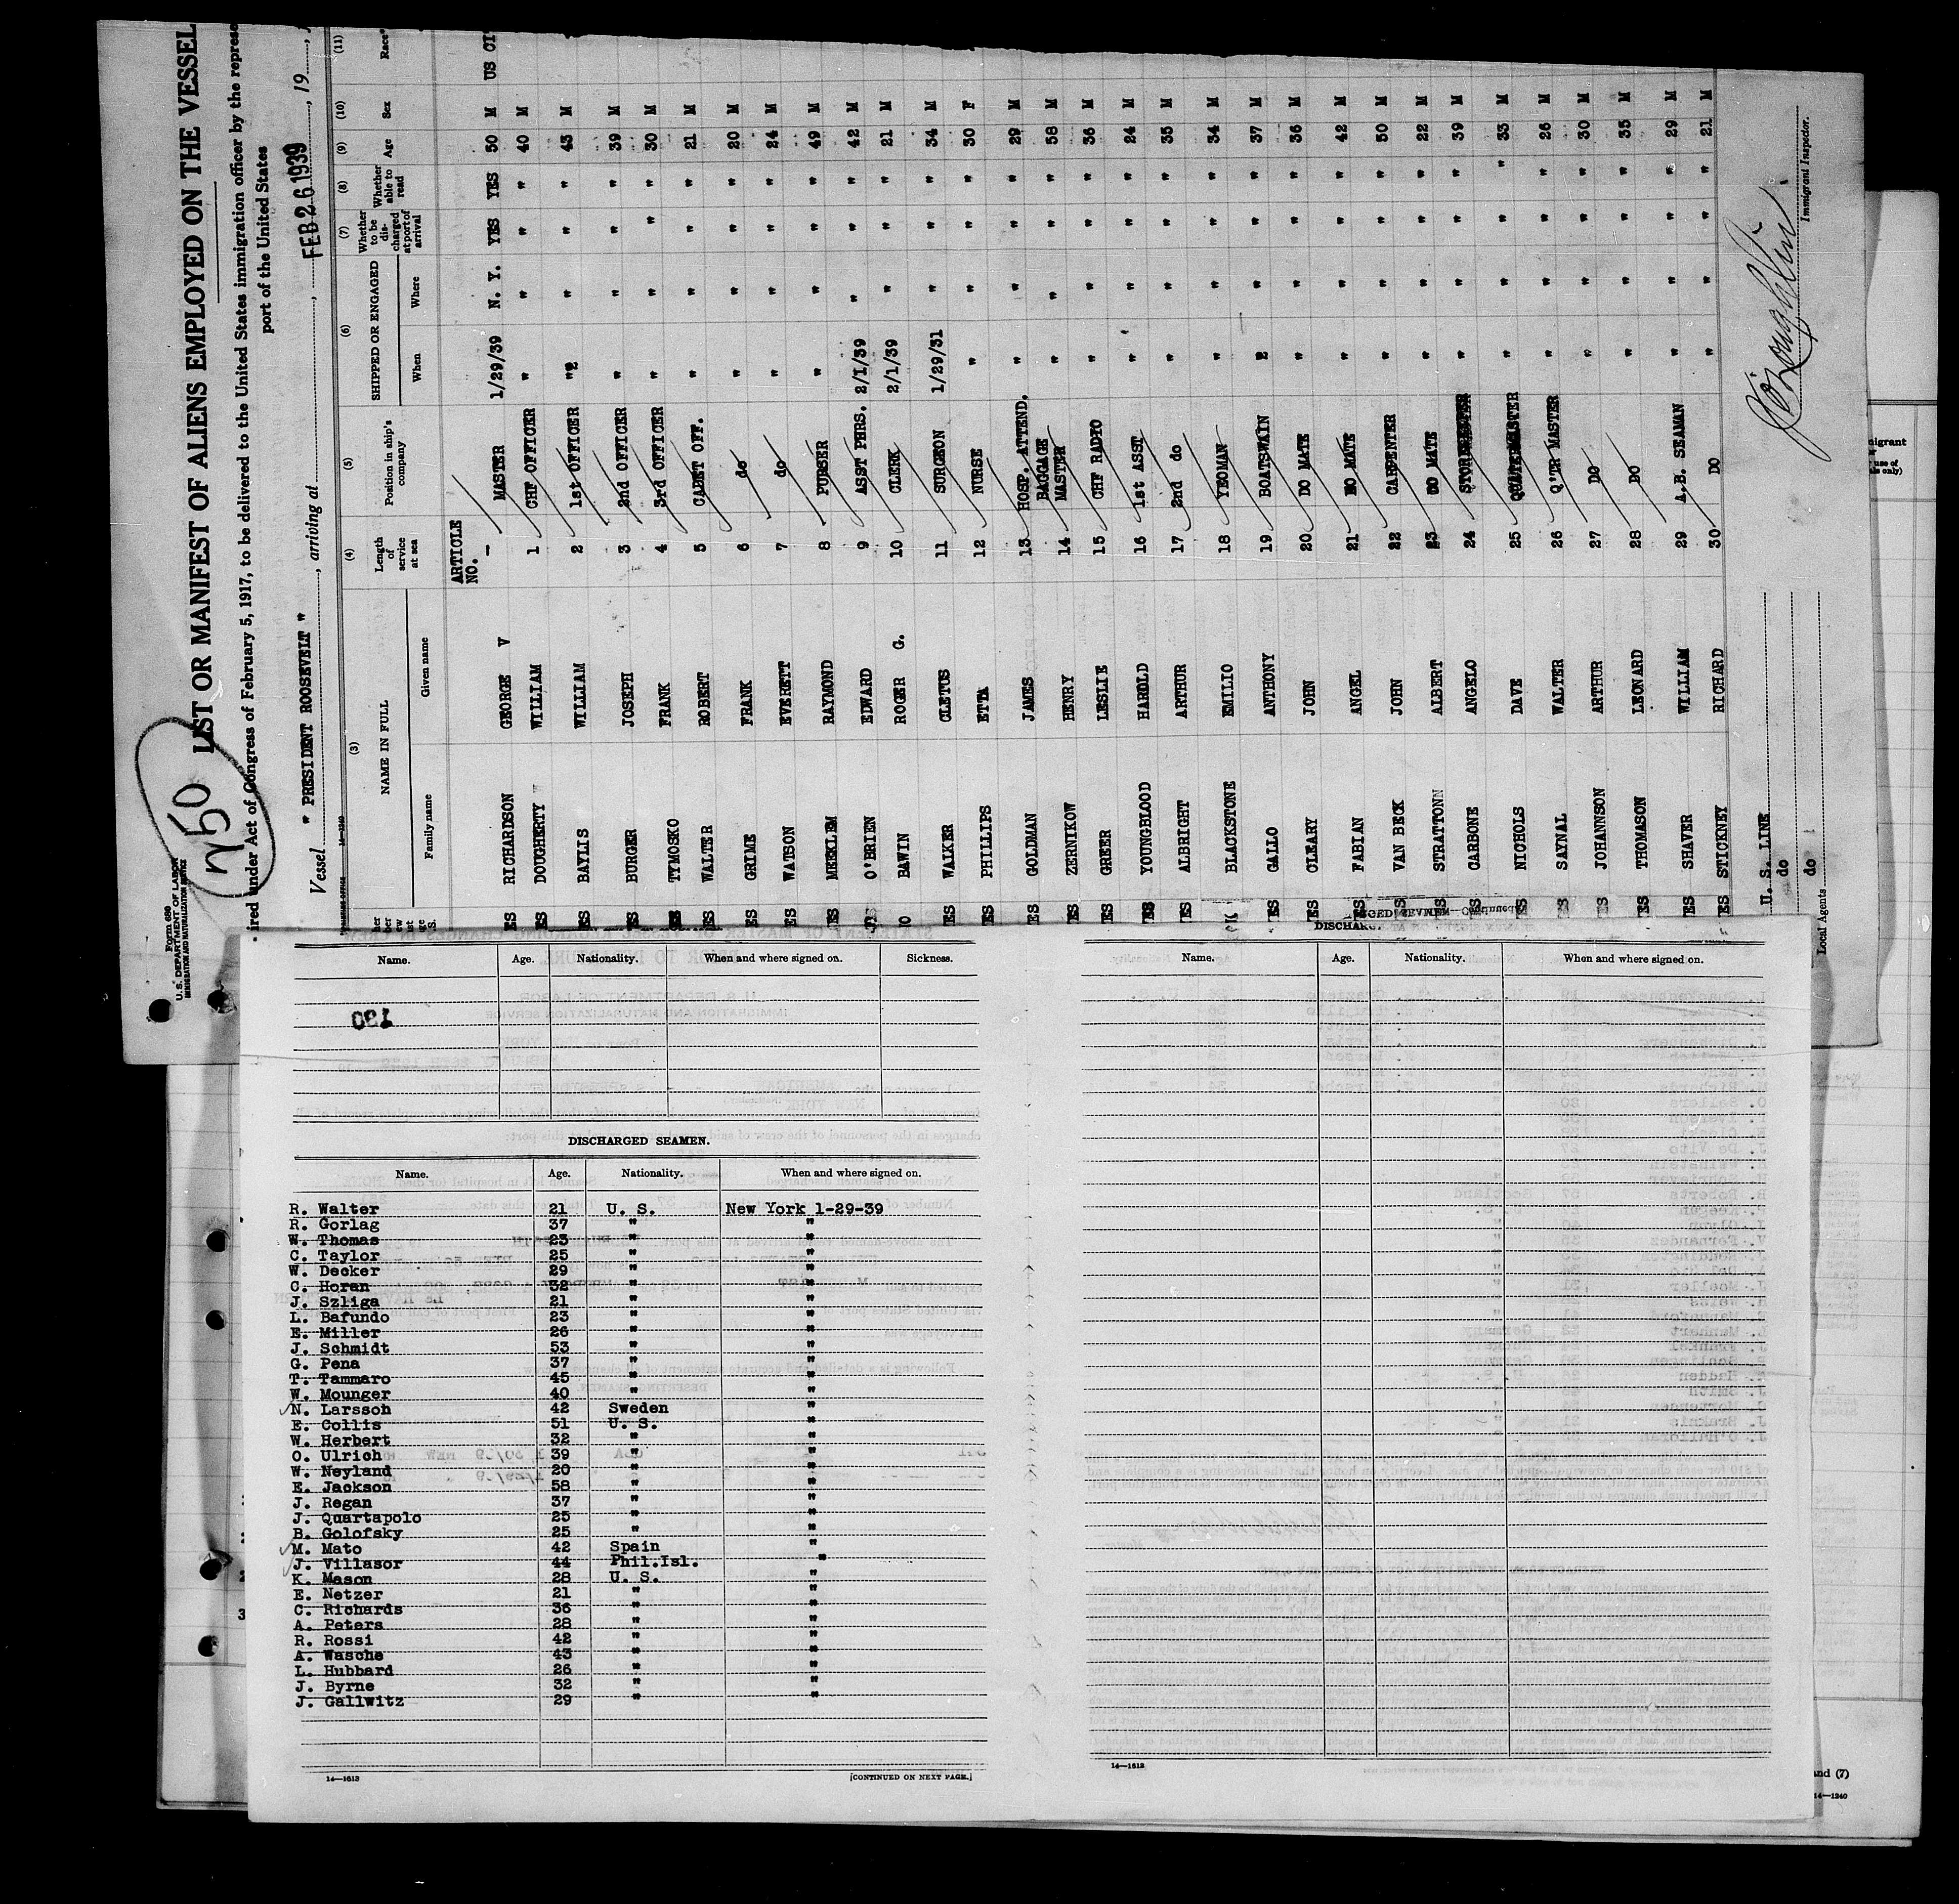 Form 686
U. S. DEPARTMENT OF LABOR
IMMIGRATION AND NATURALIZATION SERVICE
250
LIST OR MANIFEST OF ALIENS EMPLOYED ON THE VESSEL
ired under Act of Congress of February 5, 1917, to be delivered to the United States immigration officer by the represe
port of the United States
Vessel " PRESIDENT ROOSEVELT ", arriving at , FEB 26 1939, 19
(3) (4) (5) (6) (7) (8) (9) (10) (11)
NAME IN FULL Length of service at sea Position in ship's company SHIPPED OR ENGAGED Whether to be discharged at port of arrival Whether able to read Age Sex Race
Family name Given name When Where
ARTICLE NO.
ES RICHARDSON GEORGE V - MASTER 1/29/39 N. Y. YES YES 50 M US CIT
ES DOUGHERTY WILLIAM 1 CHF OFFICER " " " " 40 M
ES BAYLIS WILLIAM 2 1st OFFICER "2 " " " 43 M
ES BURGER JOSEPH 3 2nd OFFICER " " " " 39 M
ES TYMOSKO FRANK 4 3rd OFFICER " " " " 30 M
ES WALTER ROBERT 5 CADET OFF. " " " " 21 M
ES GRIME FRANK 6 do " " " " 20 M
ES WATSON EVERETT 7 do " " " " 24 M
ES MEEKLEM RAYMOND 8 PURSER " " " " 49 M
O'BRIEN EDWARD 9 ASST PHRS. 2/1/39 " " " 42 M
O BAWIN ROGER G. 10 CLERK 2/1/39 " " " 21 M
ES WALKER CLETUS 11 SURGEON 1/29/31 " " " 34 M
ES PHILLIPS ETTA 12 NURSE " " " " 30 F
ES GOLDMAN JAMES 13 HOSP. ATTEND. " " " " 29 M
ES ZERNIKOW HENRY 14 BAGGAGE MASTER " " " " 58 M
ES GREER LESLIE 15 CHF RADIO " " " " 36 M
ES YOUNGBLOOD HAROLD 16 1st ASST " " " " 24 M
ES ALBRIGHT ARTHUR 17 2nd do " " " " 35 M
BLACKSTONE EMILIO 18 YEOMAN " " " " 34 M
ES GALLO ANTHONY 19 BOATSWAIN 2 " " " 37 M
ES CLEARY JOHN 20 DO MATE " " " " 36 M
ES FABIAN ANGEL 21 DO MATE " " " " 42 M
ES VAN BECK JOHN 22 CARPENTER " " " " 50 M
ES STRATTONN ALBERT 23 DO MATE " " " " 22 M
ES CARBONE ANGELO 24 " " " " 39 M
ES NICHOLS DAVE 25 " " " " 33 M
ES SAYNAL WALTER 26 Q'TR MASTER " " " " 26 M
ES JOHANNSON ARTHUR 27 DO " " " " 30 M
ES THOMASON LEONARD 28 DO " " " " 35 M
ES SHAVER WILLIAM 29 A.B. SEAMAN " " " " 29 M
ES STICKNEY RICHARD 30 DO " " " " 21 M
U. S. LINE
do
do
Local Agents
Immigrant Inspector.
Name. Age. Nationality. When and where signed on. Sickness.
130
DISCHARGED SEAMEN.
Name. Age. Nationality. When and where signed on.
R. Walter 21 U. S. New York 1-29-39
R. Gorlag 37 " "
W. Thomas 23 " "
C. Taylor 25 " "
W. Decker 29 " "
C. Horan 32 " "
J. Szliga 21 " "
L. Bafundo 23 " "
E. Miller 26 " "
J. Schmidt 53 " "
G. Pena 37 " "
T. Tammaro 45 " "
W. Mounger 40 " "
N. Larsson 42 Sweden "
E. Collis 51 U. S. "
W. Herbert 32 " "
O. Ulrich 39 " "
W. Neyland 20 " "
E. Jackson 58 " "
J. Regan 37 " "
J. Quartapolo 25 " "
B. Golofsky 25 " "
M. Mato 42 Spain "
J. Villasor 44 Phil.Isl. "
K. Mason 28 U. S. "
E. Netzer 21 " "
C. Richards 36 " "
A. Peters 28 " "
R. Rossi 42 " "
A. Wasche 43 " "
L. Hubbard 26 " "
J. Byrne 32 " "
J. Gallwitz 29 " "
14—1613 [CONTINUED ON NEXT PAGE.]
Name. Age. Nationality. When and where signed on.
14—1613
nd (7)
14—1240